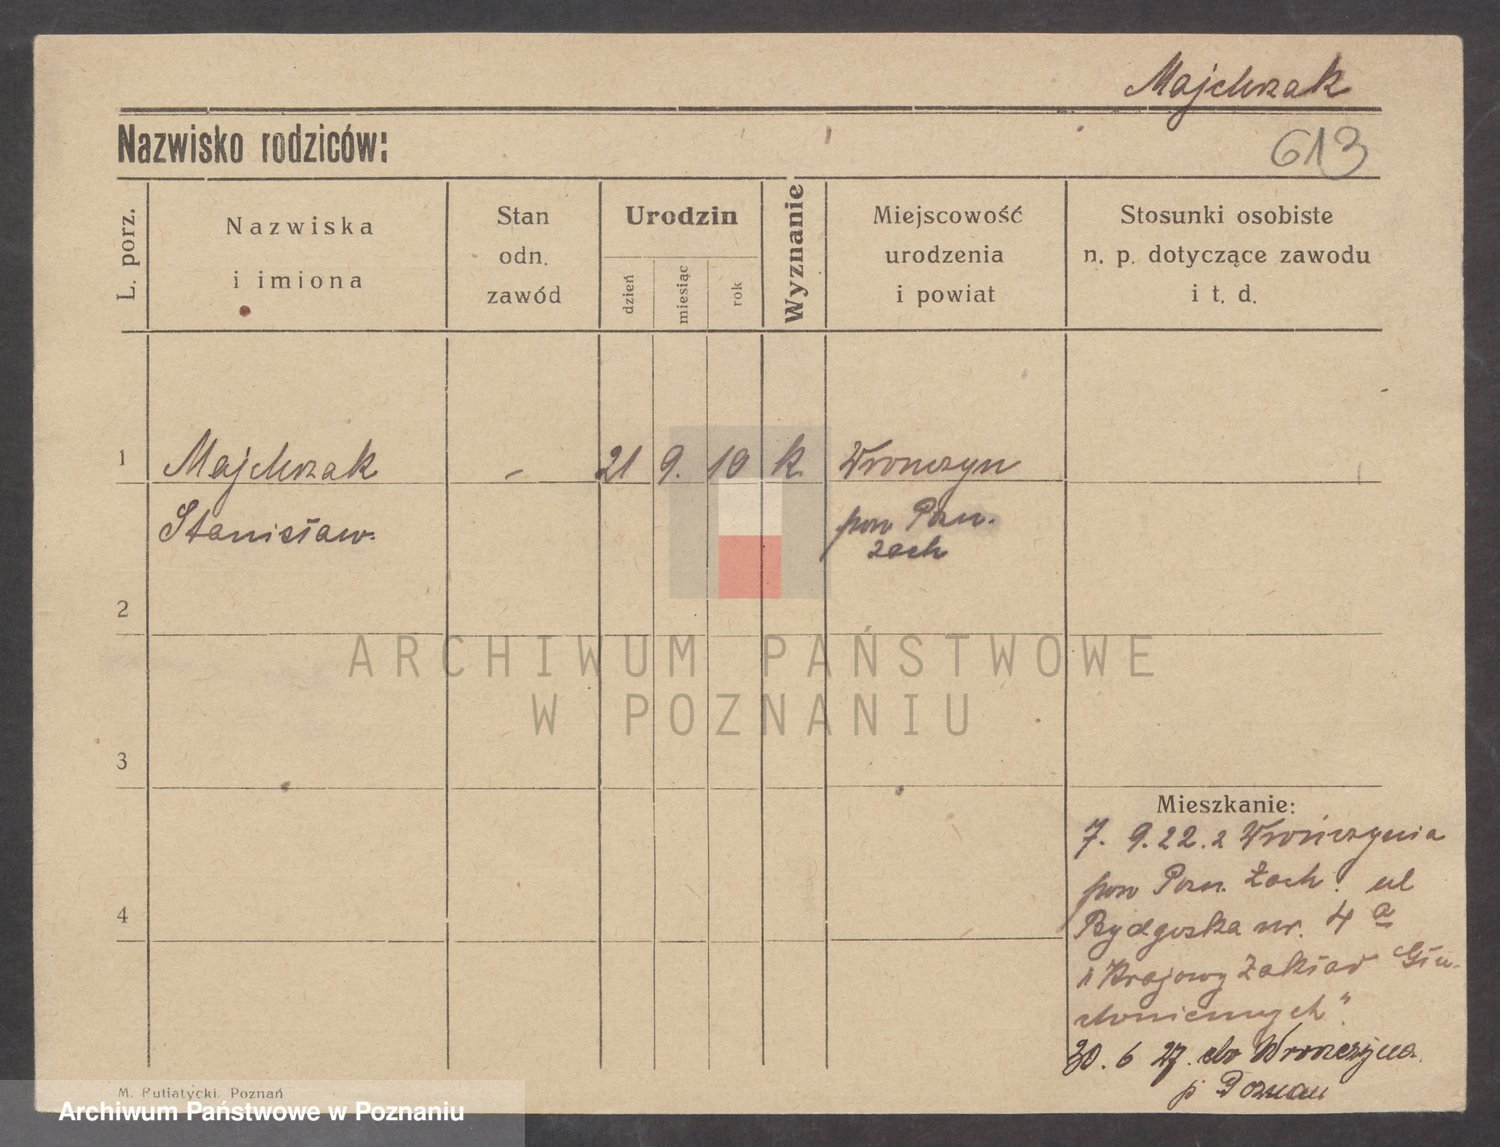 Majchrzak
Nazwisko rodziców:
613
L. porz.
Nazwiska
i imiona
Stan
odn.
zawód
Urodzin
dzień
miesiąc
rok
Wyznanie
Miejscowość
urodzenia
i powiat
Stosunki osobiste
n. p. dotyczące zawodu
i t. d.
1
Majchrzak
-
21
9.
10
k.
Wronczyn
Stanisław.
pow Pozn.
zach
2
ARCHIWUM PAŃSTWOWE
W POZNANIU
3
Mieszkanie:
7. 9.22. z Wrończynia
pow Pozn. Zach. ul
4
Bydgoska nr. 4 a
"Krajowy Zakład Głu-
choniemych".
30. 6 27. do Wronczyna
p Poznań
M. Putiatycki, Poznań
Archiwum Państwowe w Poznaniu